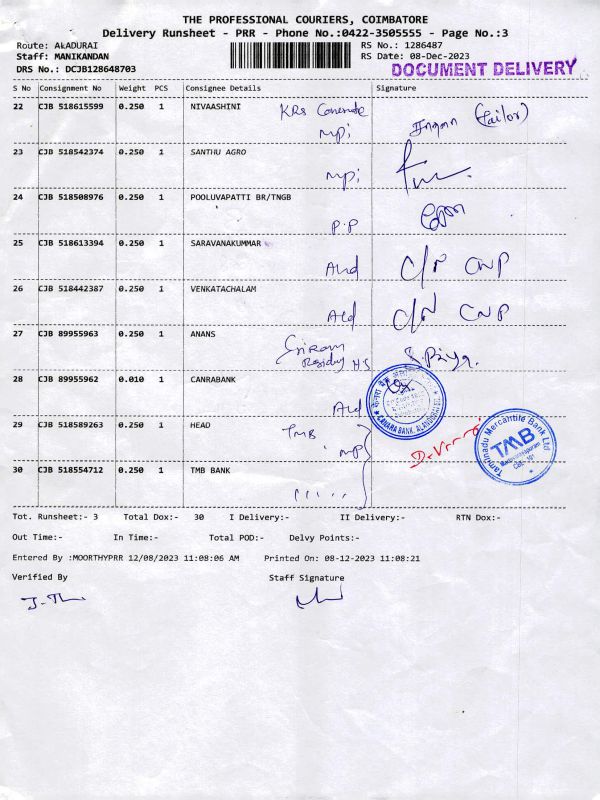 THE PROFESSIONAL COURIERS, COIMBATORE
Delivery Runsheet - PRR - Phone No.:0422-3505555 - Page No.:3
Route: ALADURAI RS No.: 1286487
Staff: MANIKANDAN RS Date: 08-Dec-2023
DRS No.: DCJB128648703 DOCUMENT DELIVERY
S No Consignment No Weight PCS Consignee Details Signature
22 CJB 518615599 0.250 1 NIVAASHINI KRS
MPi (Tailor)
23 CJB 518542374 0.250 1 SANTHU AGRO
MPi
24 CJB 518508976 0.250 1 POOLUVAPATTI BR/TNGB
P.P
25 CJB 518613394 0.250 1 SARAVANAKUMMAR
Ald C/N CNP
26 CJB 518442387 0.250 1 VENKATACHALAM
Ald C/N CNP
27 CJB 89955963 0.250 1 ANANS
S.Priya.
28 CJB 89955962 0.010 1 CANRABANK
Ald
CANARA BANK, ALANDURAI
29 CJB 518589263 0.250 1 HEAD TMB
MP
Tamilnadu Mercantile Bank Ltd
TMB
30 CJB 518554712 0.250 1 TMB BANK
Tot. Runsheet:- 3 Total Dox:- 30 I Delivery:- II Delivery:- RTN Dox:-
Out Time:- In Time:- Total POD:- Delvy Points:-
Entered By :MOORTHYPRR 12/08/2023 11:08:06 AM Printed On: 08-12-2023 11:08:21
Verified By Staff Signature